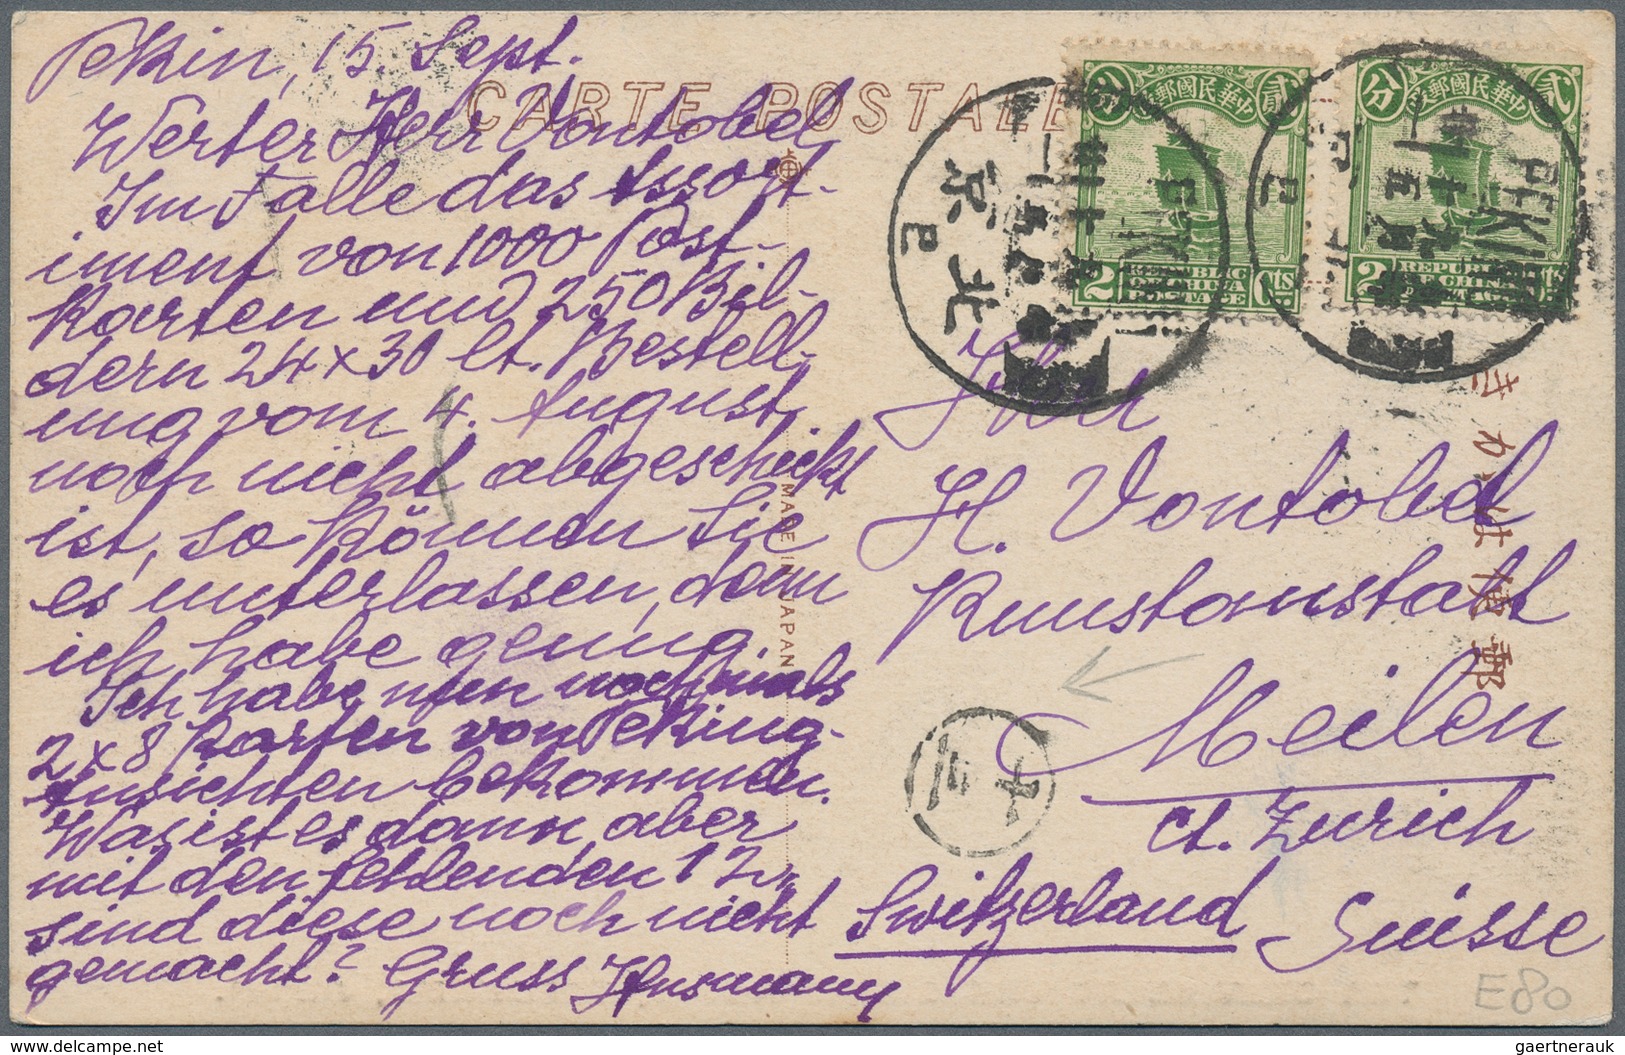 Pekin, 15. Sept.
Werter Herr Vontobel
Im Falle das Assort-
iment von 1000 Post-
karten und 250 Bil-
dern 24 x 30 lt. Bestell-
ung vom 4. August
noch nicht abgeschickt
ist, so können Sie
es unterlassen, denn
ich habe genug.
Ich habe nun nochmals
2 x 8 Karten von Peking-
Ansichten bekommen.
Was ist es dann aber
mit den fehlenden 12,
sind diese noch nicht
gemacht? Gruss
CARTE POSTALE
MADE IN JAPAN
中華民國郵政
貳 分
2 REPUBLIC OF CHINA POSTAGE 2 Cts
中華民國郵政
貳 分
2 REPUBLIC OF CHINA POSTAGE Cts
PEKING
北京
PEKING
H. Vontobel
Kunstanstalt
Meilen
Ct. Zürich
Switzerland Suisse
E80
delcampe.net
gaertnerauk